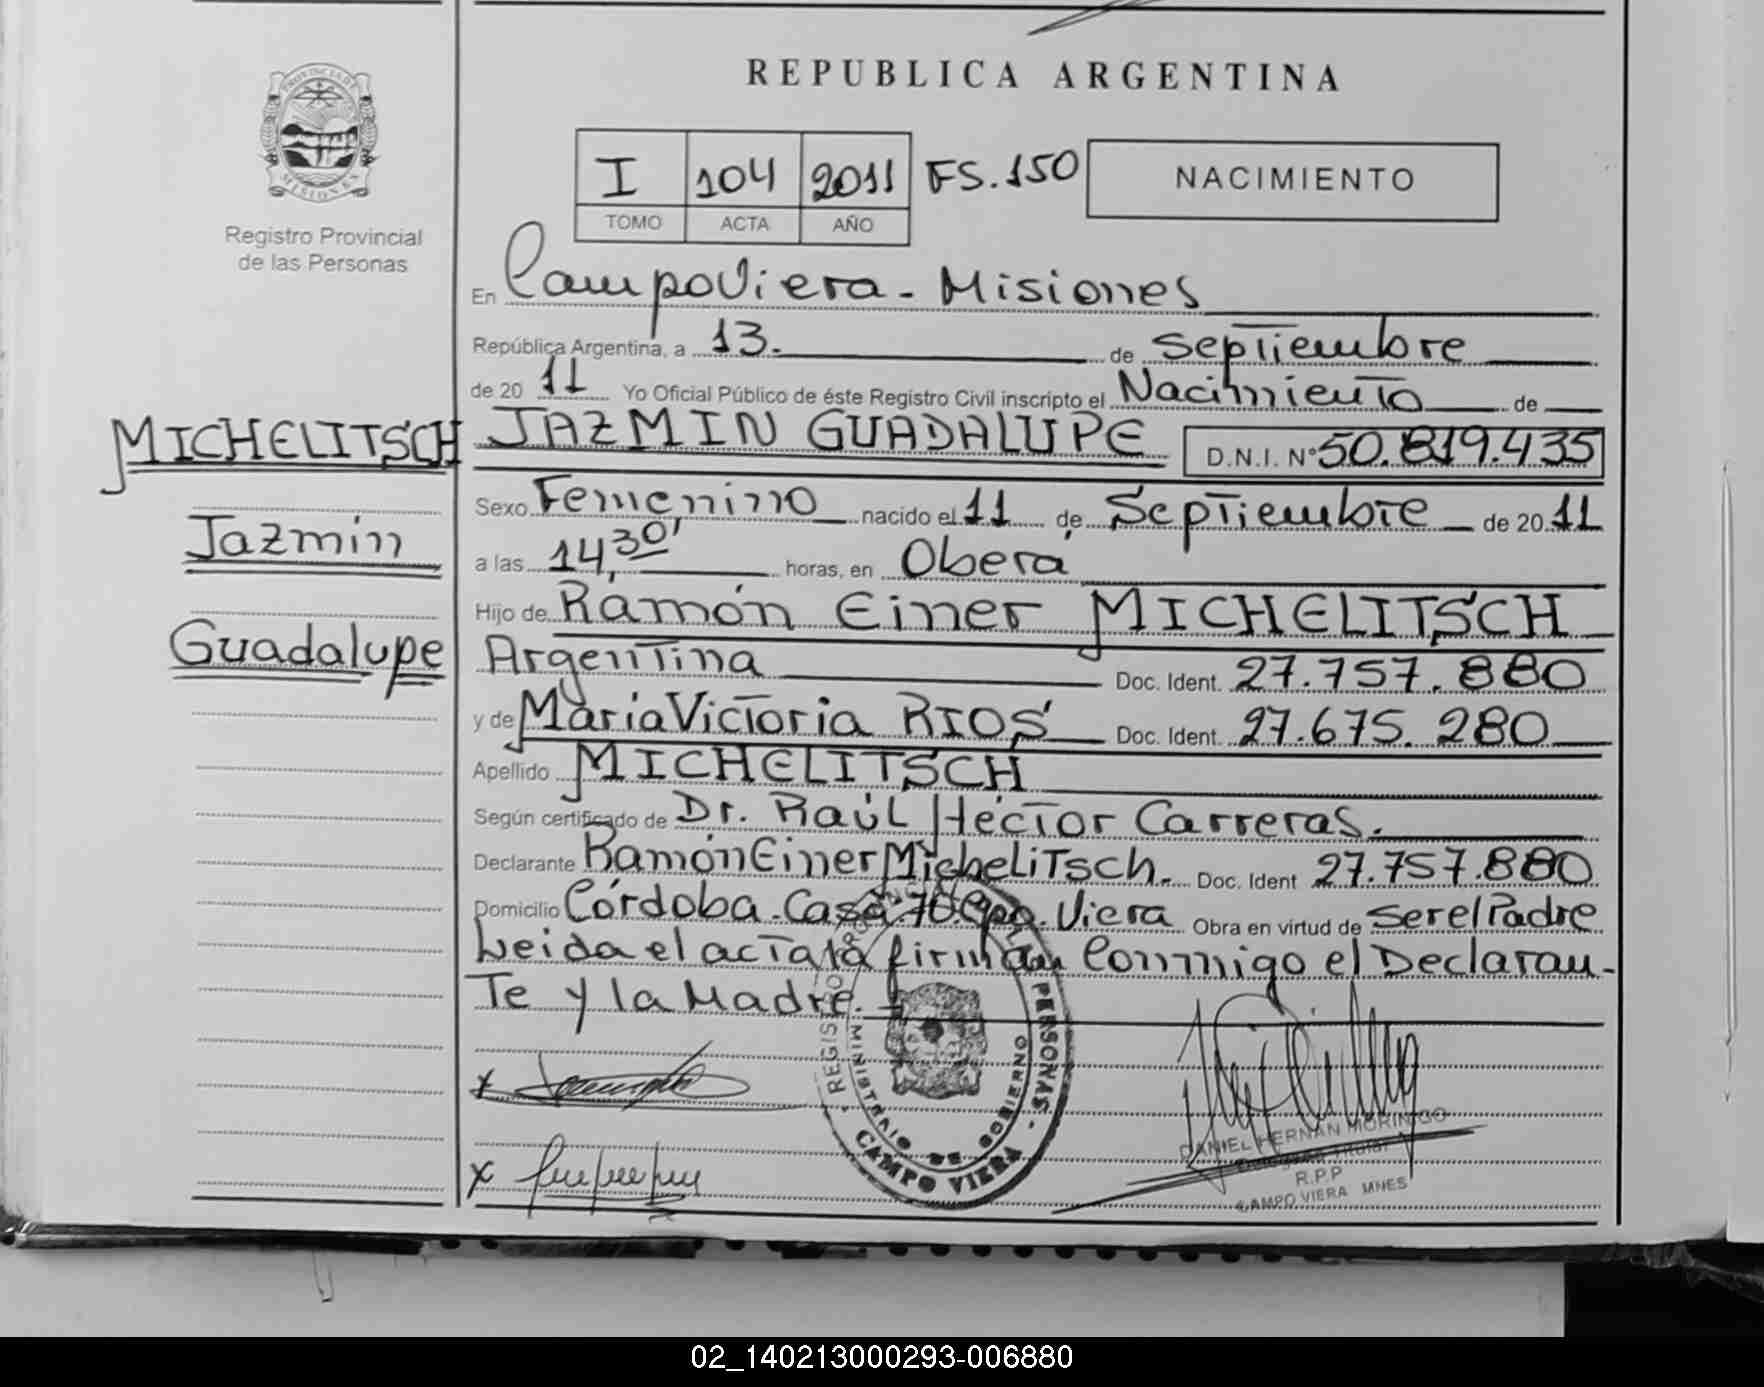 REPUBLICA ARGENTINA
PROVINCIA DE MISIONES
Registro Provincial
de las Personas
I 104 2011 FS.150
TOMO ACTA AÑO
NACIMIENTO
En CampoViera - Misiones
República Argentina, a 13. de septiembre
de 20 11 Yo Oficial Público de éste Registro Civil inscripto el Nacimiento de
MICHELITSCH
Jazmín
Guadalupe
JAZMIN GUADALUPE D.N.I. N° 50.819.435
Sexo Femenino nacido el 11 de Septiembre de 20 11
a las 14,30' horas, en Oberá
Hijo de Ramón Einer MICHELITSCH
Argentina Doc. Ident. 27.757.880
y de María Victoria RIOS Doc. Ident. 27.675.280
Apellido MICHELITSCH
Según certificado de Dr. Raúl Héctor Carreras.
Declarante Ramón Einer Michelitsch. Doc. Ident 27.757.880
Domicilio Córdoba. Casa 70. Cpo. Viera Obra en virtud de ser el Padre
Leida el acta la firman Conmigo el Declaran-
Te y la Madre.
REGISTRO PROVINCIAL DE LAS PERSONAS
MINISTERIO DE GOBIERNO
CAMPO VIERA
DANIEL HERNAN MORINIGO
Titular
R.P.P
CAMPO VIERA MNES
02_140213000293-006880